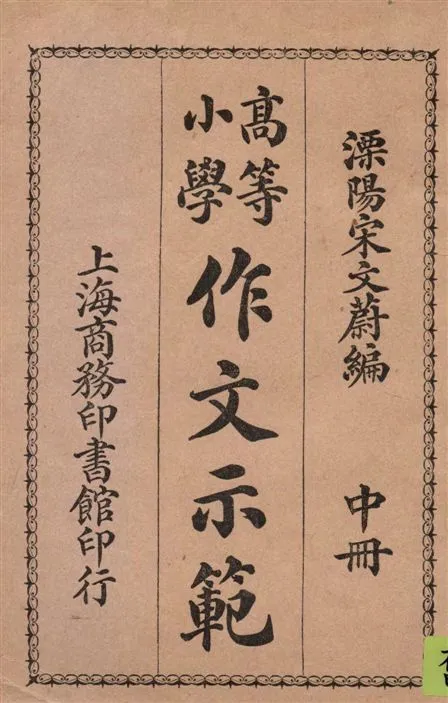 溧陽宋文蔚編 中冊
高等小學作文示範
上海商務印書館印行